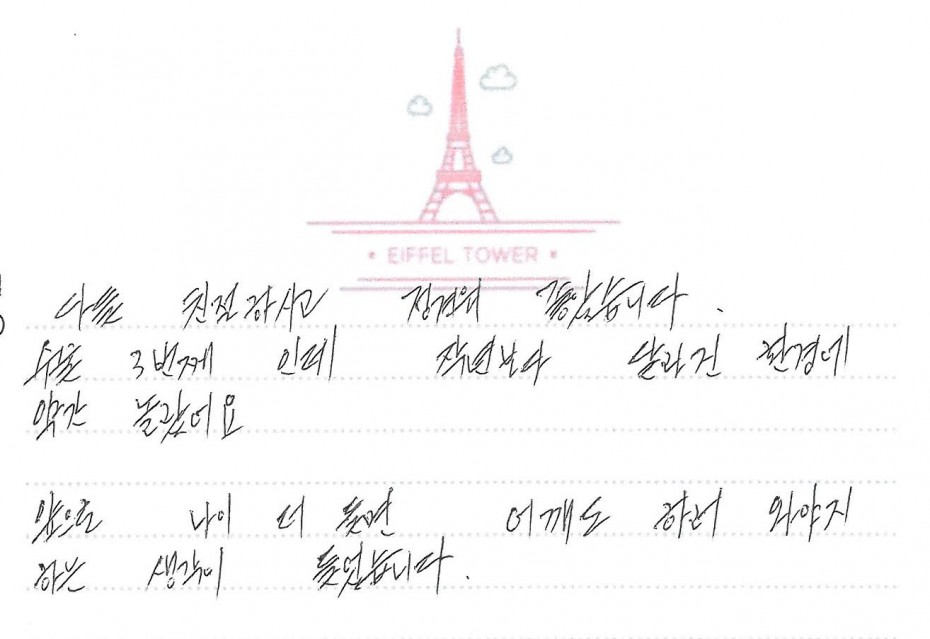 EIFFEL TOWER
다들 친절하시고 정겨워 좋았습니다.
수술 3번째 인데 작년보다 달라진 환경에
약간 놀랐어요
앞으로 나이 더 들면 어깨도 하러 와야지
하는 생각이 들었습니다.